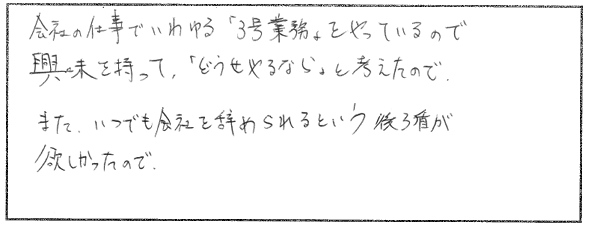 会社の仕事でいわゆる「3号業務」をやっているので
興味を持って、「どうせやるなら」と考えたので。
また、いつでも会社を辞められるという後ろ盾が
欲しかったので。